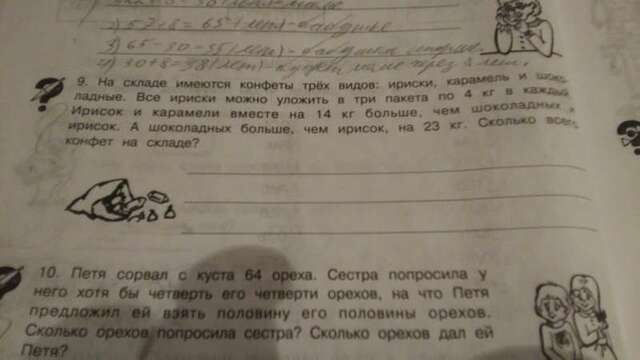 2) 57+8=65 (лет) - бабушке
3) 65-30=35 (лет) - бабушка
4) 30+8=38 (лет) -
9. На складе имеются конфеты трёх видов: ириски, карамель и шоко-
ладные. Все ириски можно уложить в три пакета по 4 кг в каждый
Ирисок и карамели вместе на 14 кг больше, чем шоколадных и
ирисок. А шоколадных больше, чем ирисок, на 23 кг. Сколько всего
конфет на складе?
10. Петя сорвал с куста 64 ореха. Сестра попросила у
него хотя бы четверть его четверти орехов, на что Петя
предложил ей взять половину его половины орехов.
Сколько орехов попросила сестра? Сколько орехов дал ей
Петя?